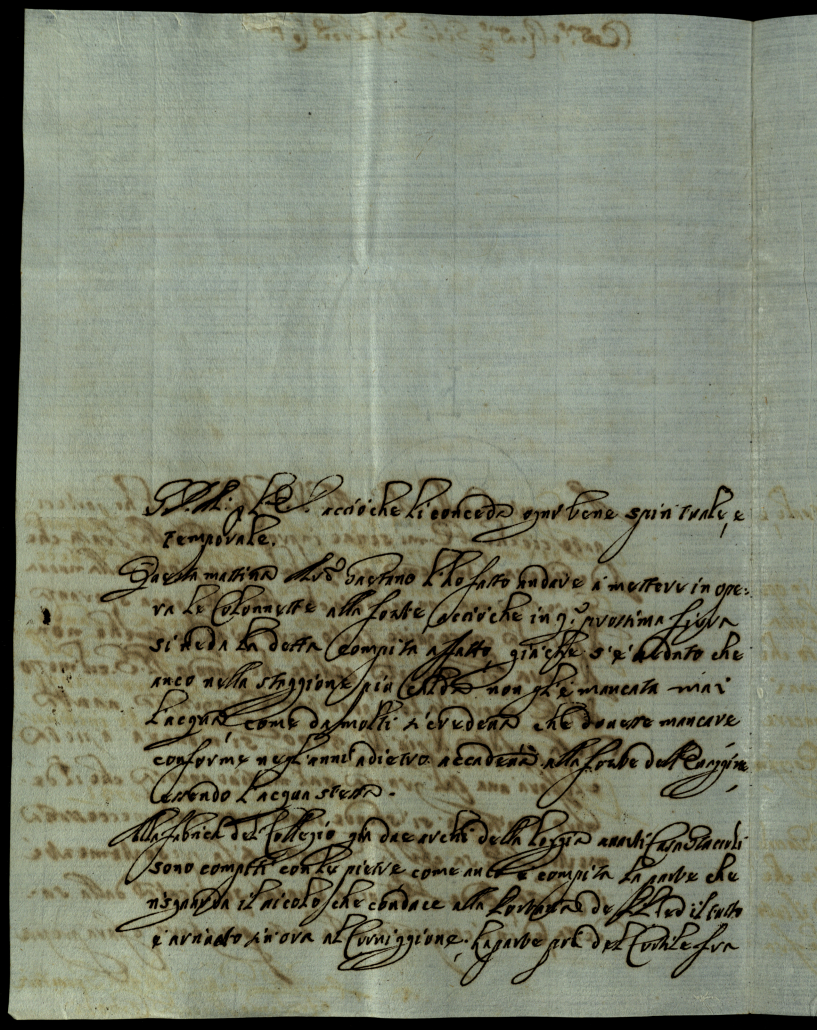 acciò che li conceda ogni bene spirituale, e
temporale.
Questa mattina Gaetano l'ho fatto andare à mettere in ope:
ra le Colonnette alla fonte, acciò che in q.a prossima fiera
si veda la detta compita affatto, già che s'è veduto che
anco nella staggione più calda non gl'è mancata mai
l'acqua, come da molti si credeva che dovesse mancare
conforme negl'anni adietro accadeva alla fonte dell
essendo l'acqua stessa.
Alla fabrica del Collegio già due archi della loggia avanti Casa
sono compiti con le pietre come anco è compita la parte che
risguarda il vicolo che conduce alla de ed il tutto
è arrivato sin'ora al Cornigione. la parte poi del Cortile fra